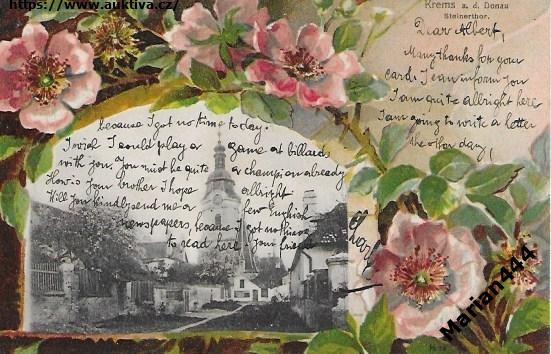 https://www.auktiva.cz/
Krems a. d. Donau
Steinerthor.
Dear Albert,
Many thanks for your
card. I can inform you
I am quite allright here
I am going to write a letter
the other day,
because I got no time to day.
I wish I could play a game at billards
with you, you must be quite a champion already
How is your brother I hope allright
Will you kindly send me a few English
newspapers, because I got nothing
to read here. Your friend
Marian444